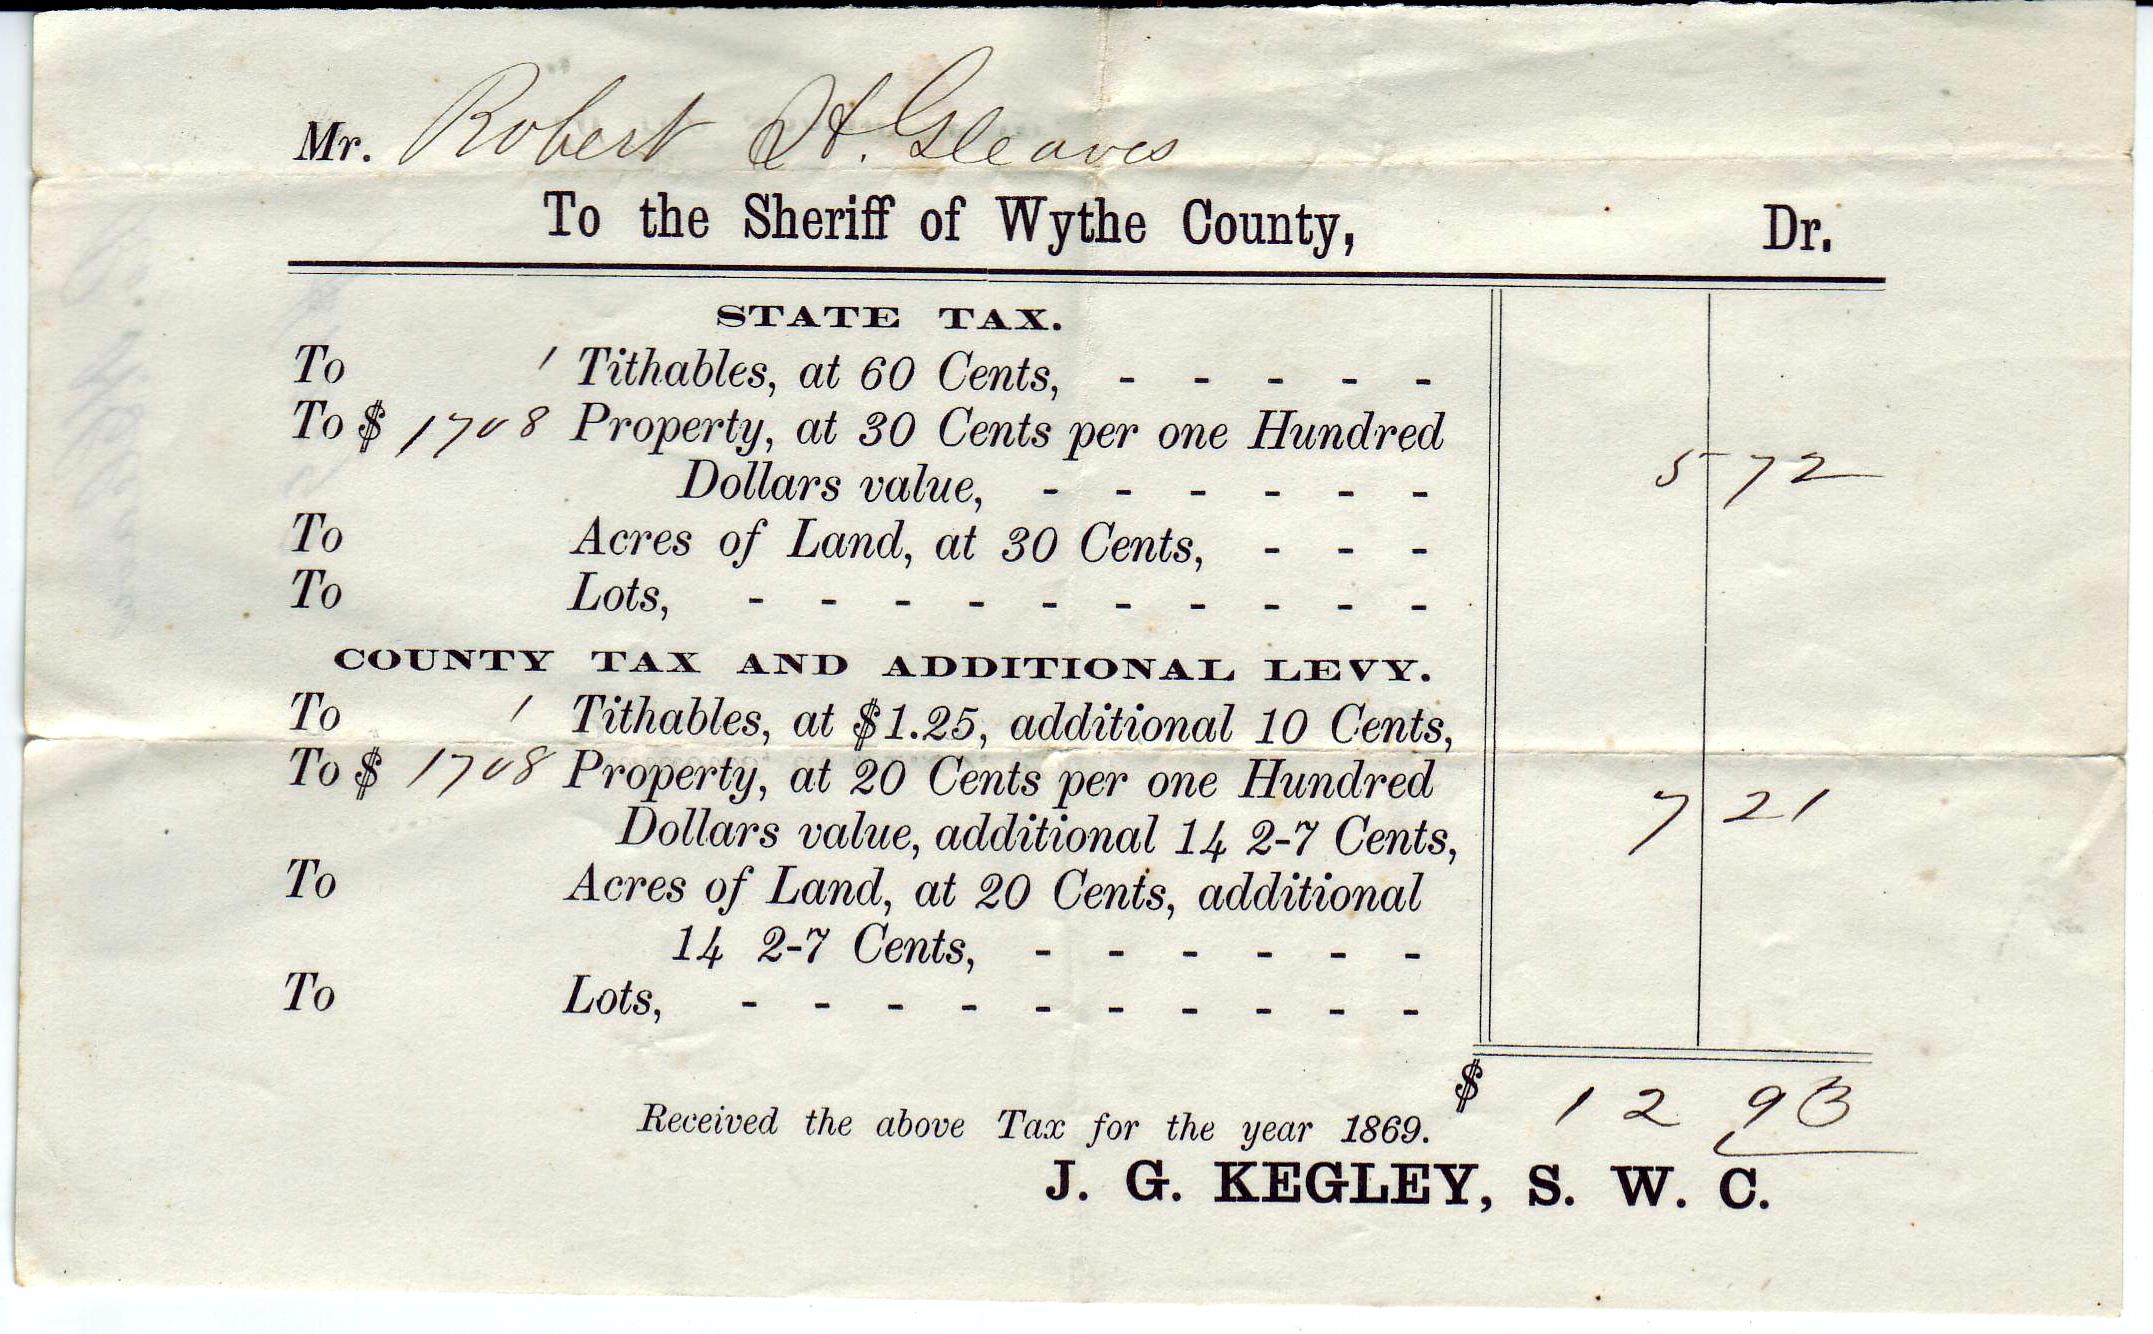 Mr. Robert H. Gleaves
To the Sheriff of Wythe County, Dr.
STATE TAX.
To 1 Tithables, at 60 Cents, - - - - -
To $ 1708 Property, at 30 Cents per one Hundred
Dollars value, - - - - - - 5 72
To Acres of Land, at 30 Cents, - - -
To Lots, - - - - - - - - - -
COUNTY TAX AND ADDITIONAL LEVY.
To 1 Tithables, at $1.25, additional 10 Cents,
To $ 1708 Property, at 20 Cents per one Hundred
Dollars value, additional 14 2-7 Cents, 7 21
To Acres of Land, at 20 Cents, additional
14 2-7 Cents, - - - - - -
To Lots, - - - - - - - - - -
$ 12 93
Received the above Tax for the year 1869.
J. G. KEGLEY, S. W. C.